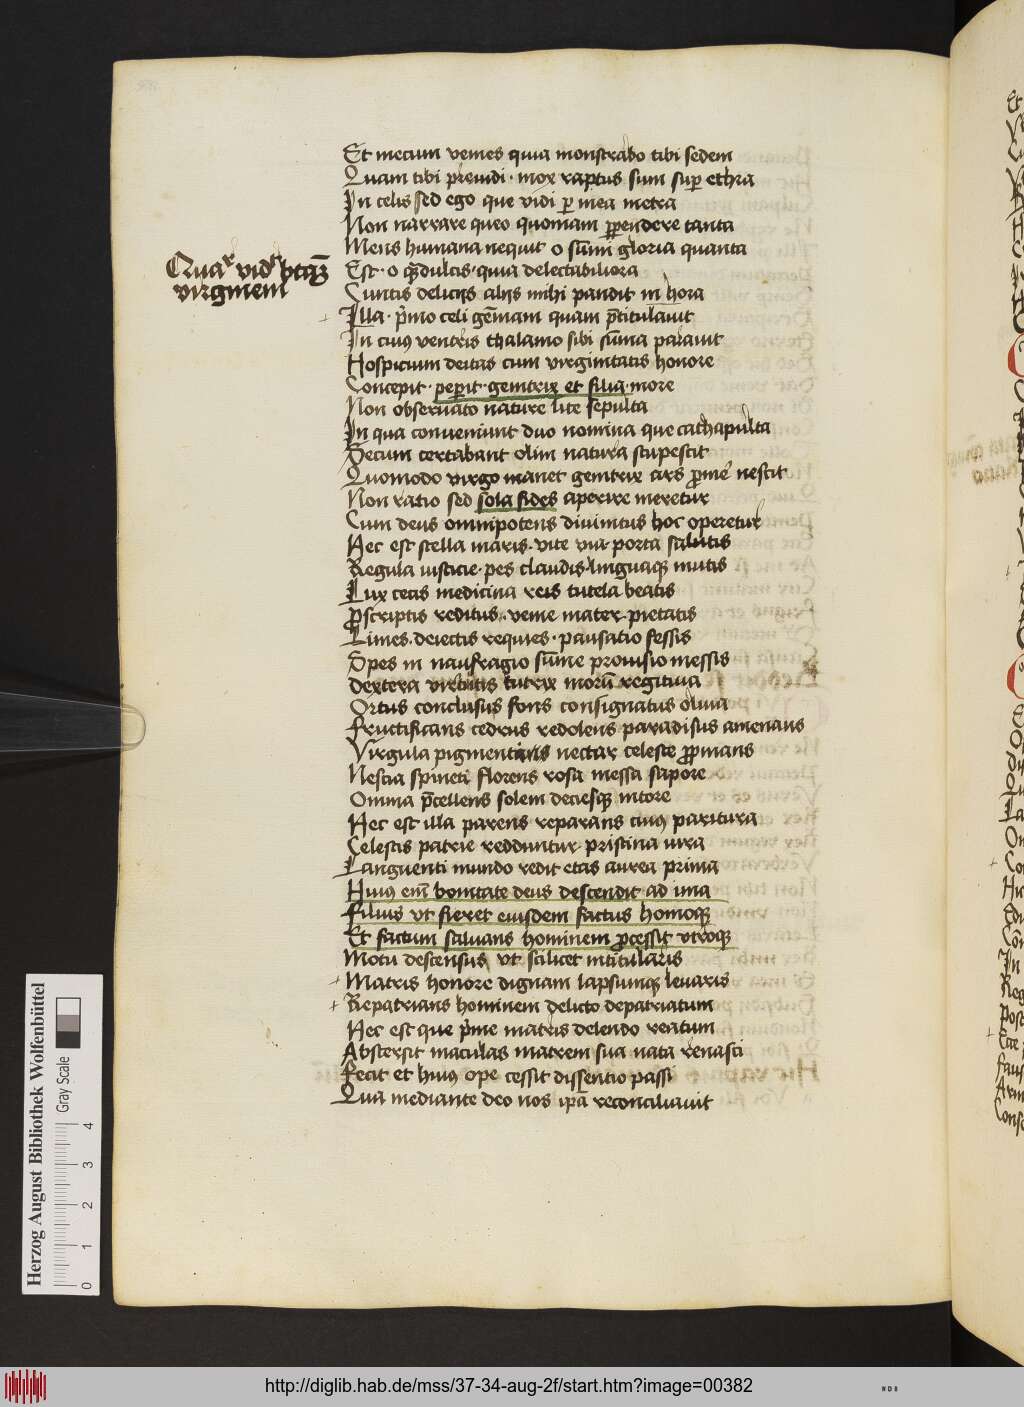 Et mecum venies quia monstrabo tibi sedem
Quam tibi p̄reuidi · mox raptus sum sup ethra
In celis sed ego que vidi p mea metra
Non narrare queo quoniam ꝑpendere tanta
Mens humana nequit o sūmi gloria quanta
Quar vidr btāȝ
virginem
Est · o q̄ȝ dulcis · quia delectabiliora
Cuntis delicijs alijs mihi pandit in hora
Illa · p̄mo celi gēmam quam p̄titulauit
In cuiꝰ ventris thalamo sibi sūma parauit
Hospicium deitas cum virginitatis honore
Concepit · peperit · genitrix et filia · more
Non obseruato nature lite sepulta
In qua conueniunt duo nomina que cathapulta
Secum certabant olim natura stupescit
Quomodo virgo manet genitrix ars p̄me nescit
Non ratio sed sola fides aperire meretur
Cum deus omnipotens diuinitus hoc operetur
Hec est stella maris · vite via · porta salutis
Regula iusticie · pes claudis linguaqꝫ mutis
Lux cecis medicina reis tutela beatis
Proscriptis reditus · veine mater pietatis
Limes · deiectis requies · pausatio fessis
Spes in naufragio sūme prouisio messis
dextera virtutis tutrix morū regitiua
Ortus conclusus fons consignatus oliua
fructificans cedrus redolens paradisus amenans
Virgula pigmentans nectar celeste ꝓpinans
Nescia spineti florens rosa messa sapore
Omnia p̄cellens solem deciesqꝫ nitore
Hec est illa parens reparans cuiꝰ paritura
Celestis patrie redduntur pristina iura
Languenti mundo redit etas aurea prima
Huiꝰ em̄ bonitate deus descendit ad ima
filius vt fieret eiusdem factus homoqꝫ
Et factum saluans hominem ꝓcessit vtroqꝫ
Motu descensus vt scilicet intitularis
Matris honore dignam lapsumqꝫ leuaris
Repatrians hominem delicto depatriatum
Hec est que p̄me matris delendo reatum
Abstersit maculas matrem sua nata renasci
Fecit et huiꝰ ope cessit dissentio passi
Qua mediante deo nos ip̄a reconciliauit
Herzog August Bibliothek Wolfenbüttel
Gray Scale
0 1 2 3 4
http://diglib.hab.de/mss/37-34-aug-2f/start.htm?image=00382